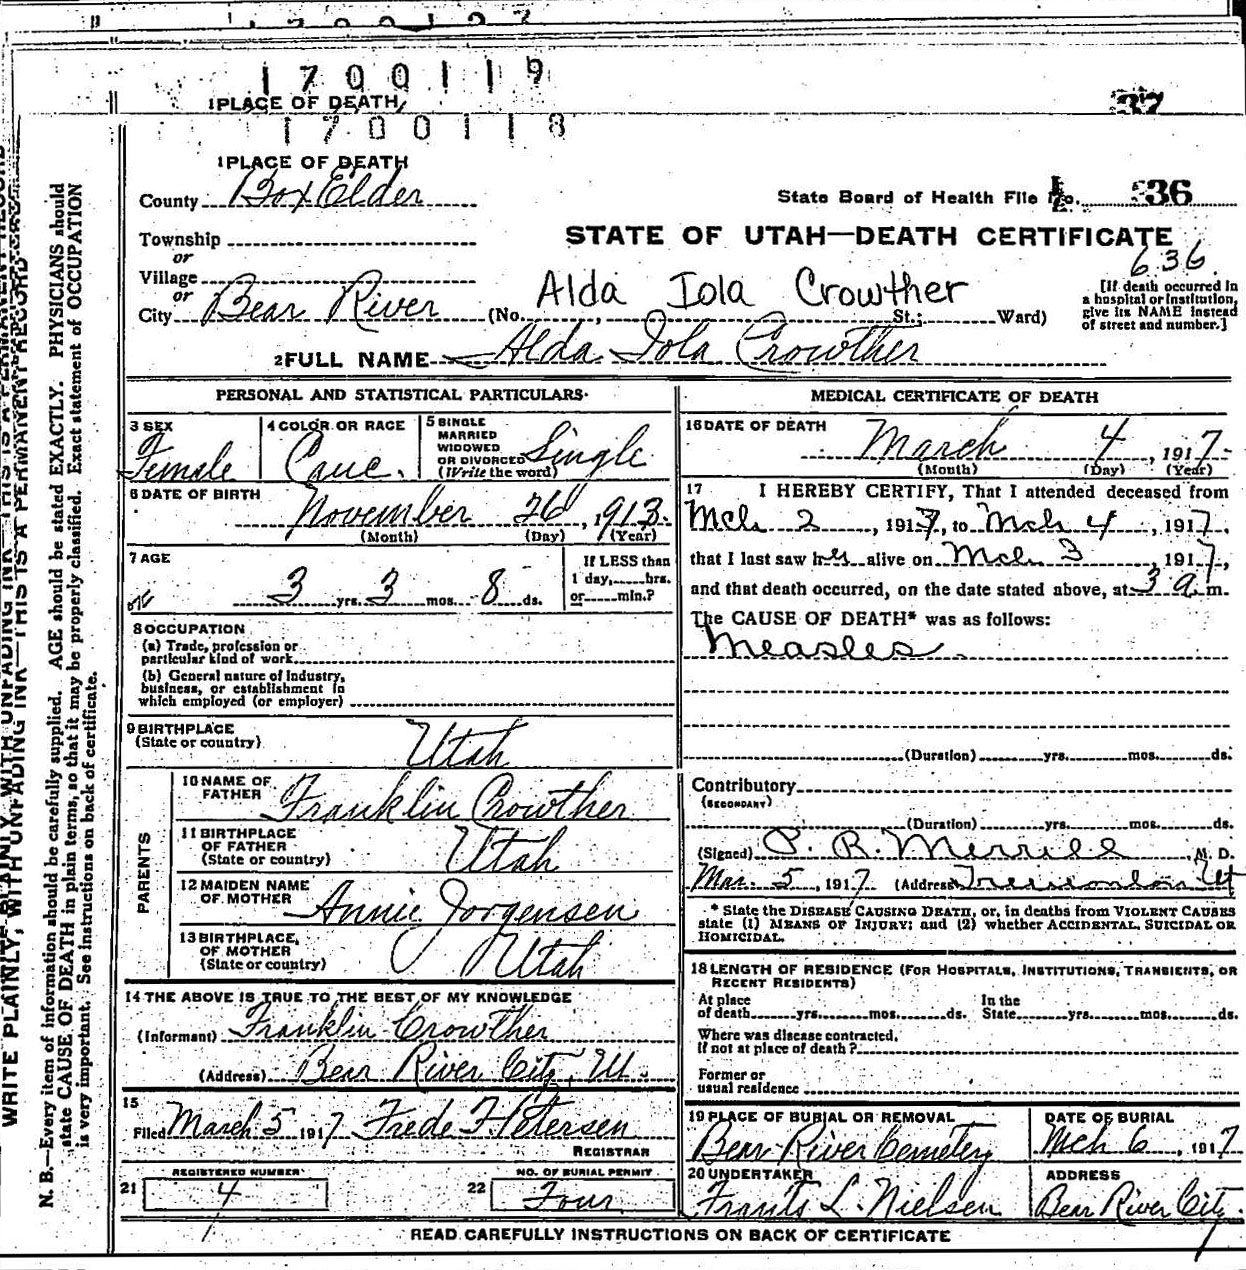 1700119
1 PLACE OF DEATH
37
1700118
1 PLACE OF DEATH
County Box Elder
State Board of Health File No. 36
Township
or
STATE OF UTAH—DEATH CERTIFICATE
636
Village
or
City Bear River (No. Alda Iola Crowther St.; Ward)
[If death occurred in
a hospital or institution,
give its NAME instead
of street and number.]
2 FULL NAME Alda Iola Crowther
PERSONAL AND STATISTICAL PARTICULARS
3 SEX Female
4 COLOR OR RACE Cauc.
5 SINGLE
MARRIED
WIDOWED
OR DIVORCED
(Write the word) Single
6 DATE OF BIRTH
November 26, 1913.
(Month) (Day) (Year)
7 AGE
3 yrs. 3 mos. 8 ds.
If LESS than
1 day, hrs.
or min.?
8 OCCUPATION
(a) Trade, profession or
particular kind of work
(b) General nature of industry,
business, or establishment in
which employed (or employer)
9 BIRTHPLACE
(State or country) Utah
PARENTS
10 NAME OF
FATHER Franklin Crowther
11 BIRTHPLACE
OF FATHER
(State or country) Utah
12 MAIDEN NAME
OF MOTHER Annie Jorgensen
13 BIRTHPLACE
OF MOTHER
(State or country) Utah
14 THE ABOVE IS TRUE TO THE BEST OF MY KNOWLEDGE
(Informant) Franklin Crowther
(Address) Bear River City, Ut.
15
Filed March 5 1917 Frede F. Petersen
REGISTRAR
REGISTERED NUMBER
21 4
NO. OF BURIAL PERMIT
22 Four
MEDICAL CERTIFICATE OF DEATH
16 DATE OF DEATH
March 4, 1917
(Month) (Day) (Year)
17 I HEREBY CERTIFY, That I attended deceased from
Mch 2, 1917, to Mch 4, 1917,
that I last saw her alive on Mch 3, 1917,
and that death occurred, on the date stated above, at 3 a.m.
The CAUSE OF DEATH* was as follows:
Measles
(Duration) yrs. mos. ds.
Contributory
(SECONDARY)
(Duration) yrs. mos. ds.
(Signed) P. R. Merrill, M. D.
Mar. 5, 1917 (Address) Tremonton Ut
* State the DISEASE CAUSING DEATH, or, in deaths from VIOLENT CAUSES
state (1) MEANS OF INJURY; and (2) whether ACCIDENTAL, SUICIDAL OR
HOMICIDAL.
18 LENGTH OF RESIDENCE (FOR HOSPITALS, INSTITUTIONS, TRANSIENTS, OR
RECENT RESIDENTS)
At place
of death yrs. mos. ds.
In the
State yrs. mos. ds.
Where was disease contracted,
if not at place of death?
Former or
usual residence
19 PLACE OF BURIAL OR REMOVAL
Bear River Cemetery
DATE OF BURIAL
Mch 6, 1917
20 UNDERTAKER
Frants L. Nielsen
ADDRESS
Bear River City.
READ CAREFULLY INSTRUCTIONS ON BACK OF CERTIFICATE
WRITE PLAINLY, WITH UNFADING INK—THIS IS A PERMANENT RECORD
N. B.—Every item of information should be carefully supplied. AGE should be stated EXACTLY. PHYSICIANS should
state CAUSE OF DEATH in plain terms, so that it may be properly classified. Exact statement of OCCUPATION
is very important. See instructions on back of certificate.